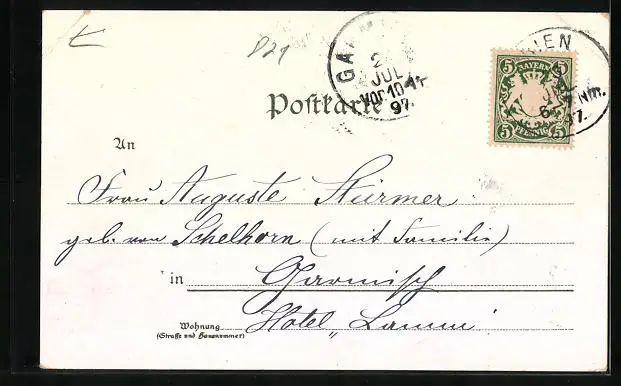 821
GA
2
JUL
Vor 10-11
97.
IEN
6-7 Nm.
97.
5 BAYERN 5
5 PFENNIG 5
Postkarte
An
Frau Auguste Stürmer
geb. von Schelhorn (mit Familie)
in Garmisch
Wohnung Hotel „Lamm"
(Strasse und Hausnummer)